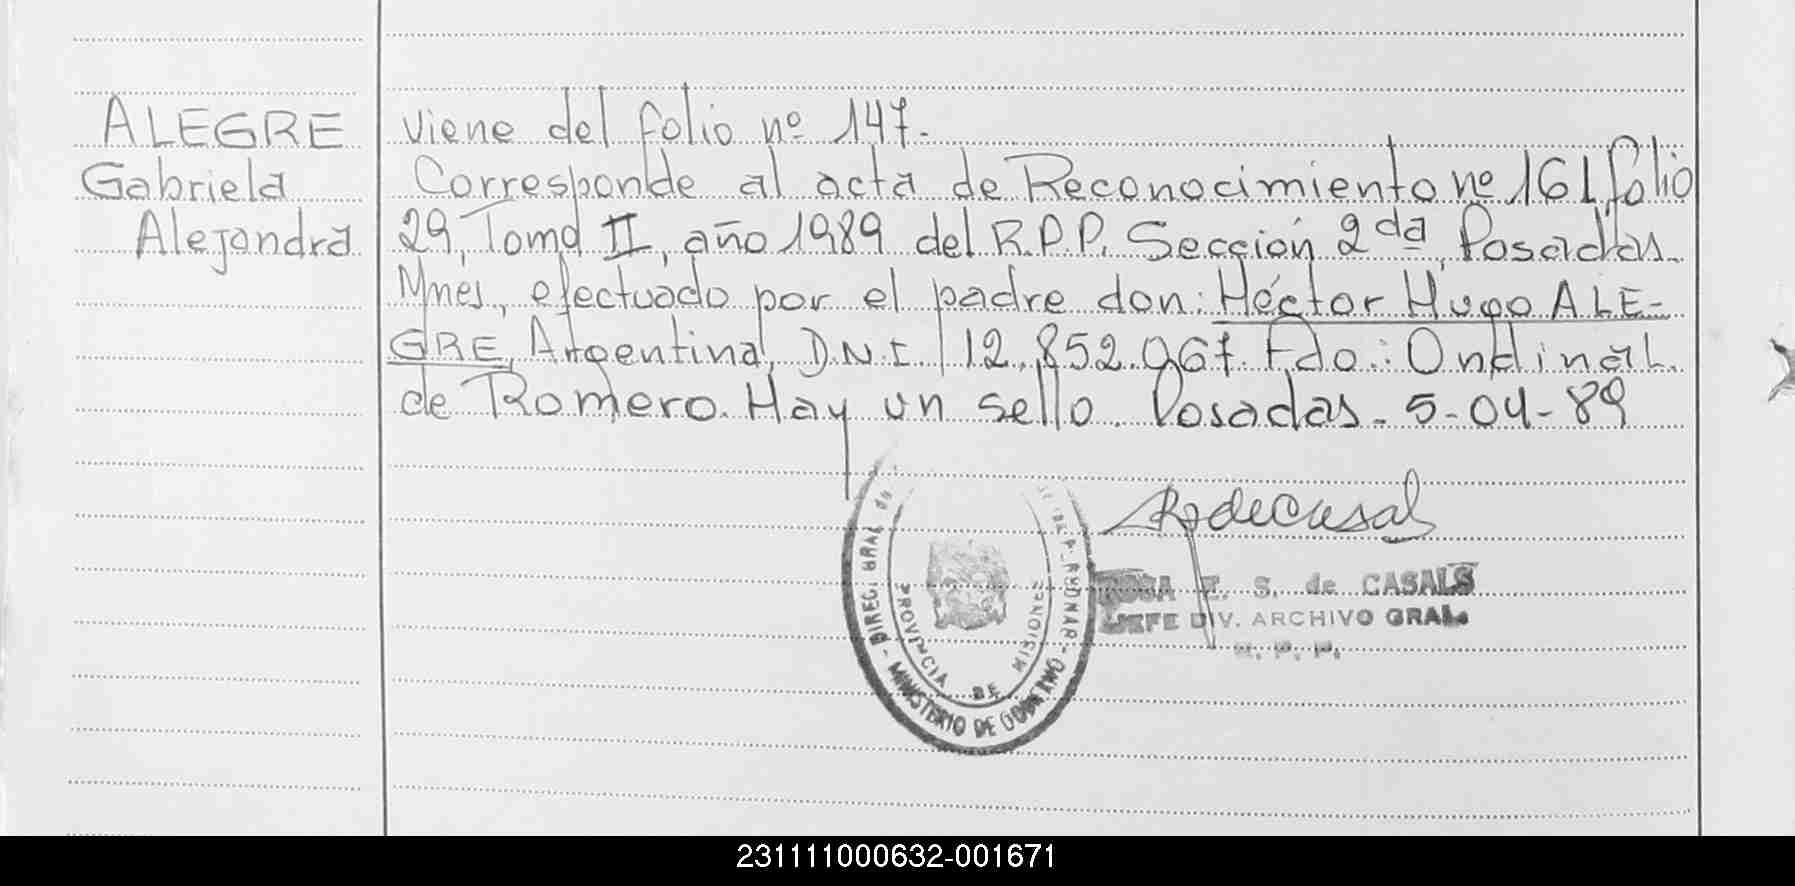 ALEGRE
Gabriela
Alejandra
viene del folio nº 147.
Corresponde al acta de Reconocimiento nº 161 folio
29, Tomo II, año 1989 del R.P.P. Sección 2da, Posadas.
Mnes., efectuado por el padre don: Héctor Hugo ALE-
GRE, Argentina, D.N.I. 12.852.967. Fdo.: Ondina L.
de Romero. Hay un sello. Posadas - 5-04-89
DIREC. GRAL de
MINISTERIO DE GOBIERNO
PROVINCIA DE MISIONES
E. S. de CASALS
JEFE DIV. ARCHIVO GRAL.
R. P. P.
231111000632-001671